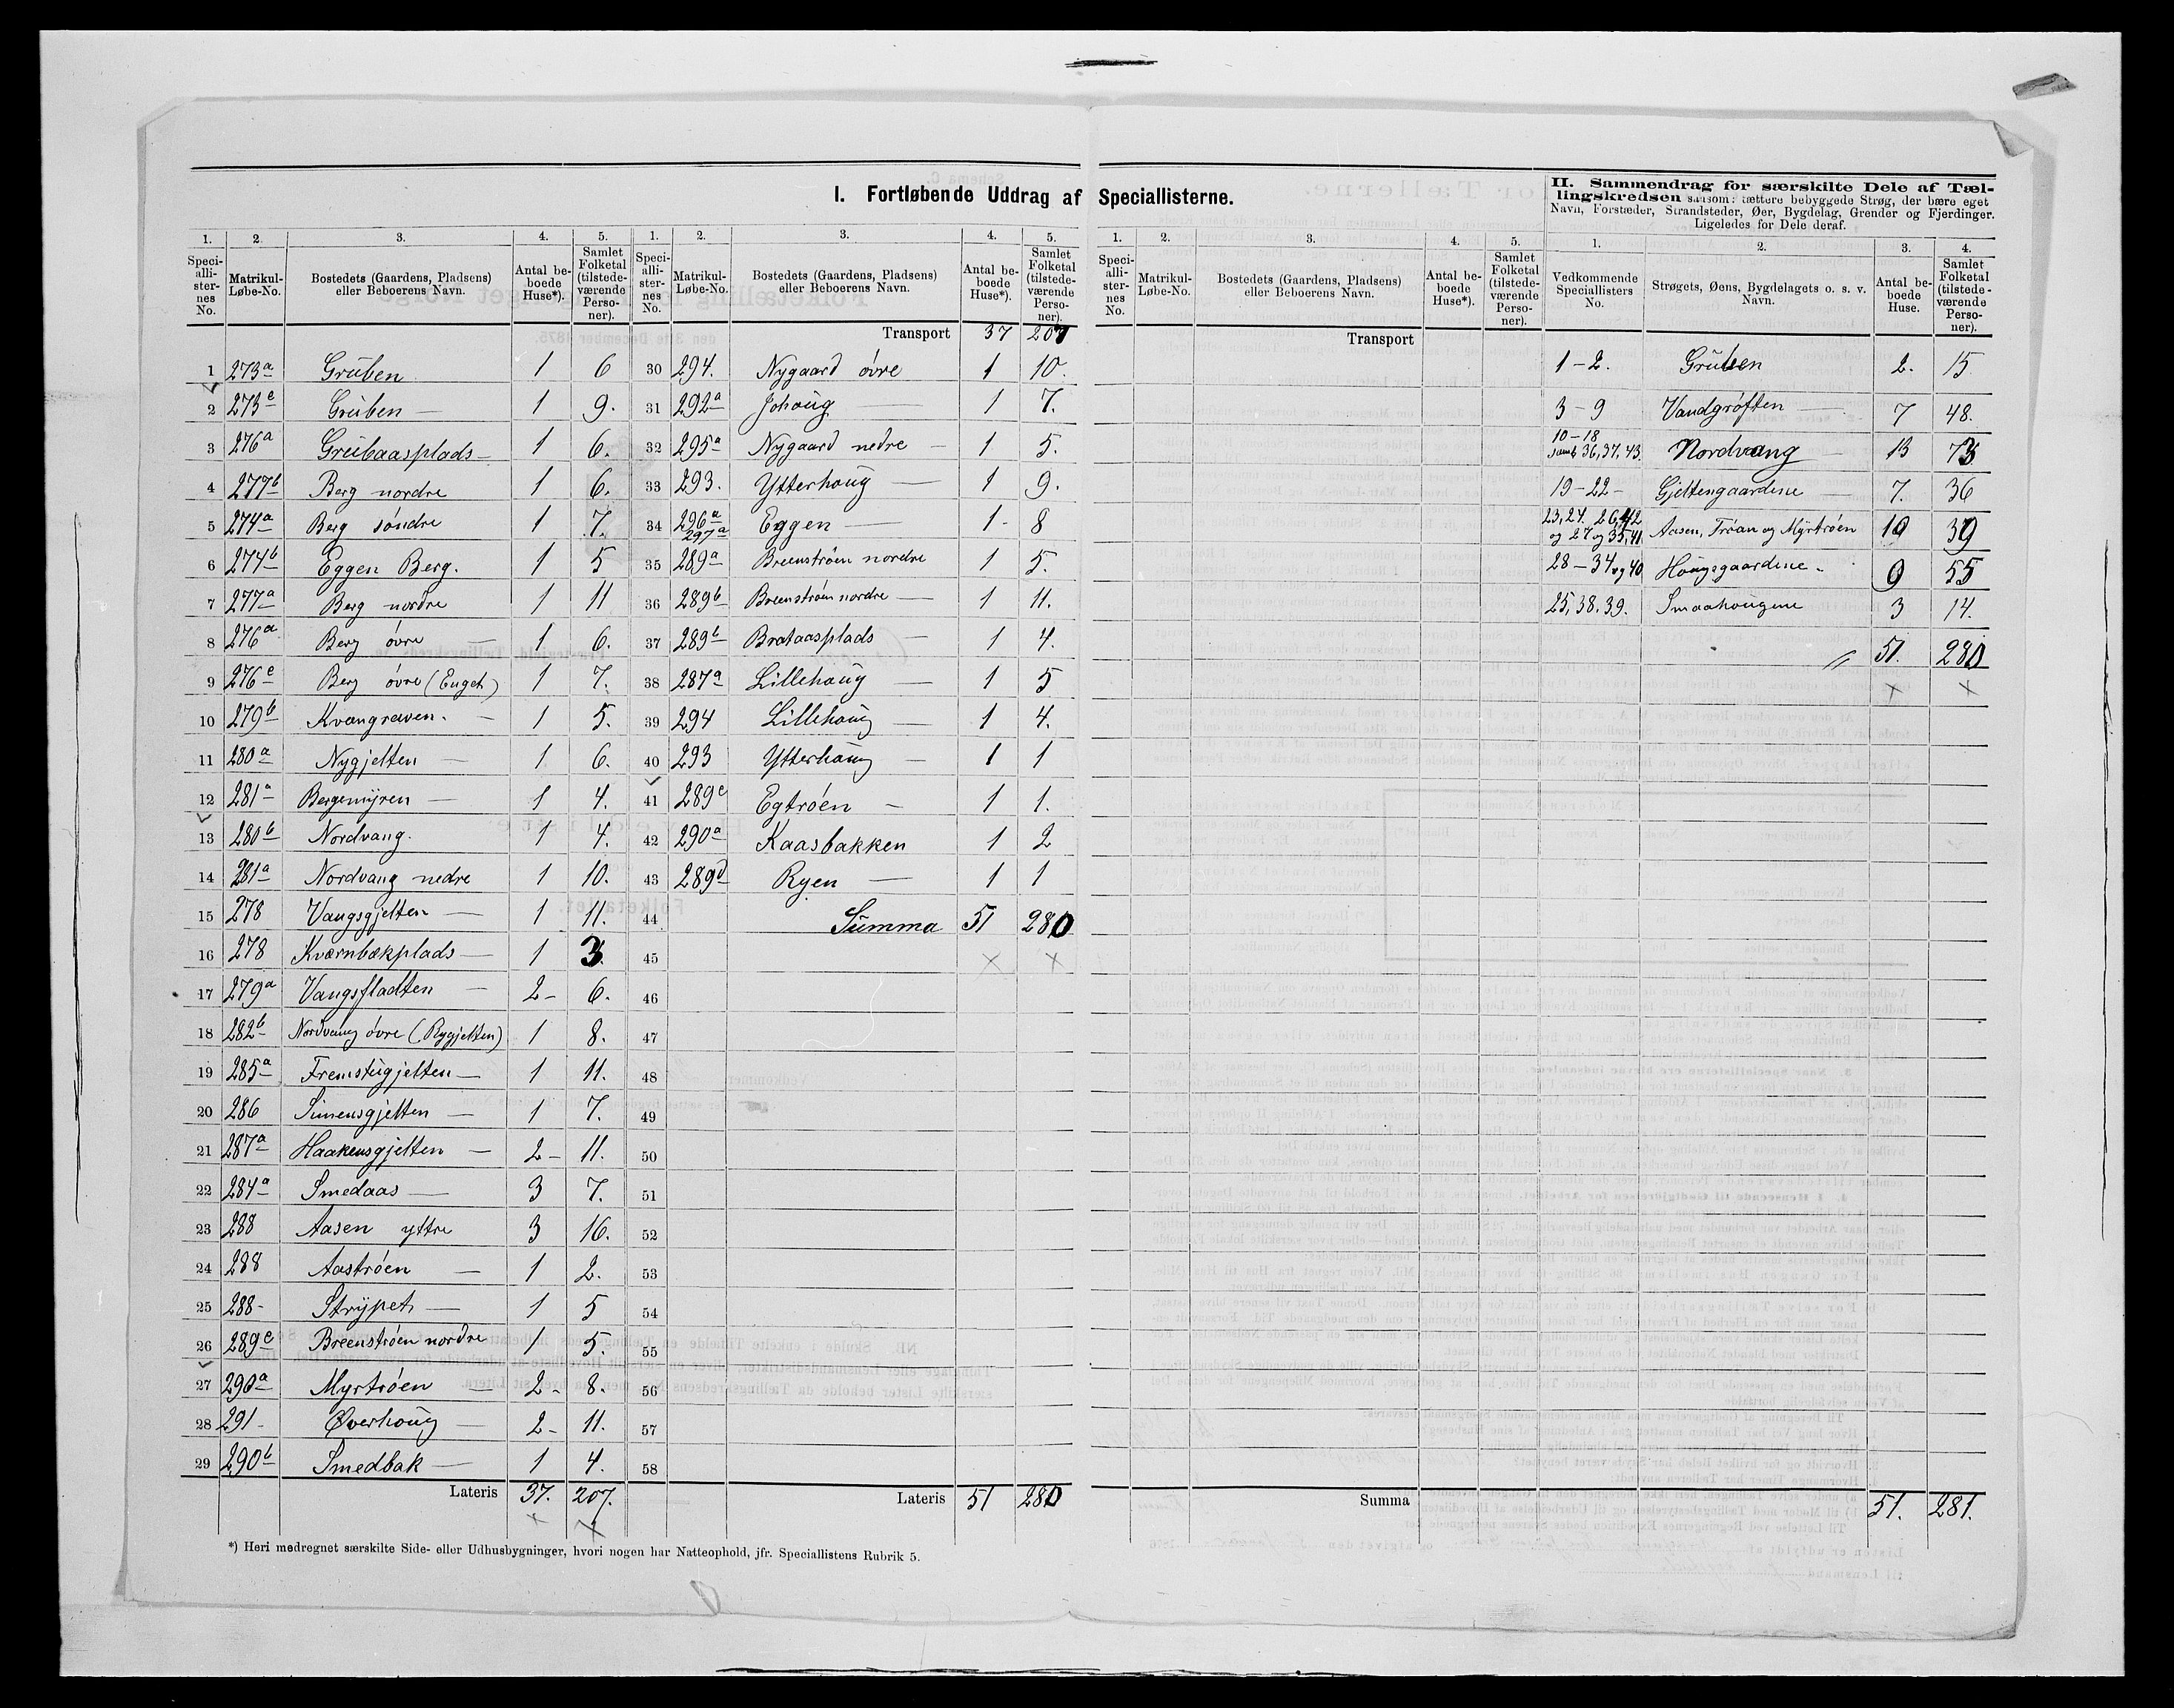 I. Fortløbende Uddrag af Speciallisterne.
1. 2. 3. 4. 5.
Speciallisternes No. | Matrikul-Løbe-No. | Bostedets (Gaardens, Pladsens) eller Beboerens Navn. | Antal beboede Huse*). | Samlet Folketal (tilstedeværende Personer).
1 273a Gruben 1 6
2 273e Gruben 1 9.
3 276a Grubaasplads 1 6.
4 277b Berg nordre 1 6.
5 274a Berg søndre 1 7.
6 274b Eggen Berg. 1 5
7 277a Berg nordre 1 11
8 276a Berg övre 1 6.
9 276e Berg övre (Enget) 1 7.
10 279b Kvangraven. 1 5.
11 280a Nygjelten 1 6.
12 281a Bergemyren 1 4.
13 280b Nordvang. 1 4.
14 281a Nordvang nedre 1 10.
15 278 Vangsgjelten 1 11.
16 278 Kværnbækplads 1 3.
17 279a Vangsfladten 2 6.
18 282b Nordvang övre (Rygjelten) 1 8.
19 285a Fremstugjelten 1 11.
20 286 Simensgjelten 1 7.
21 287a Haakensgjelten 2 11.
22 284a Smedaas 3 7.
23 288 Aasen yttre 3 16.
24 288 Aastrøen 1 2.
25 288 Strypet 1 5
26 289c Breenstrøen nordre 1 5.
27 290a Myrtrøen 2 8.
28 291 Øverhoug 2 11.
29 290b Smedbak 1 4.
Lateris 37. 207.
*) Heri medregnet særskilte Side- eller Udhusbygninger, hvori nogen har Natteophold, jfr. Speciallistens Rubrik 5.
1. 2. 3. 4. 5.
Speciallisternes No. | Matrikul-Løbe-No. | Bostedets (Gaardens, Pladsens) eller Beboerens Navn. | Antal beboede Huse*). | Samlet Folketal (tilstedeværende Personer).
Transport 37 207
30 294. Nygaard övre 1 10.
31 292a Johoug 1 7.
32 295a Nygaard nedre 1 5.
33 293. Ytterhoug 1 9.
34 296a 297a Eggen 1 8
35 289a Breenstrøen nordre 1 5.
36 289b Breenstrøen nordre 1 11.
37 289b Brataasplads 1 4.
38 287a Lillehoug 1 5
39 294 Lillehoug 1 4.
40 293 Ytterhoug 1 1
41 289e Egtrøen 1 1.
42 290a Kaasbakken 1 2
43 289d Ryen 1 1
44 Summa 51 280
45
46
47
48
49
50
51
52
53
54
55
56
57
58
Lateris 51 280
1. 2. 3. 4. 5.
Speciallisternes No. | Matrikul-Løbe-No. | Bostedets (Gaardens, Pladsens) eller Beboerens Navn. | Antal beboede Huse*). | Samlet Folketal (tilstedeværende Personer).
Transport
Summa
II. Sammendrag for særskilte Dele af Tællingskredsen saasom: tættere bebyggede Strøg, der bære eget
Navn, Forstæder, Strandsteder, Øer, Bygdelag, Grender og Fjerdinger.
Ligeledes for Dele deraf.
1. 2. 3. 4.
Vedkommende Speciallisters No. | Strøgets, Øens, Bygdelagets o. s. v. Navn. | Antal beboede Huse. | Samlet Folketal (tilstedeværende Personer).
1-2. Gruben 2. 15
3-9 Vandgrøften 7 48.
10-18 samt 36, 37, 43. Nordvang 13 73
19-22 Gjeltengaardene 7. 36
23, 24. 26, 42 og 27 og 35, 41 Aasen, Trøan og Myrtrøen 10 39
28-34 og 40 Hougsgaardene 9 55
25, 38. 39. Smaahougene 3 14.
51. 280
51. 281.